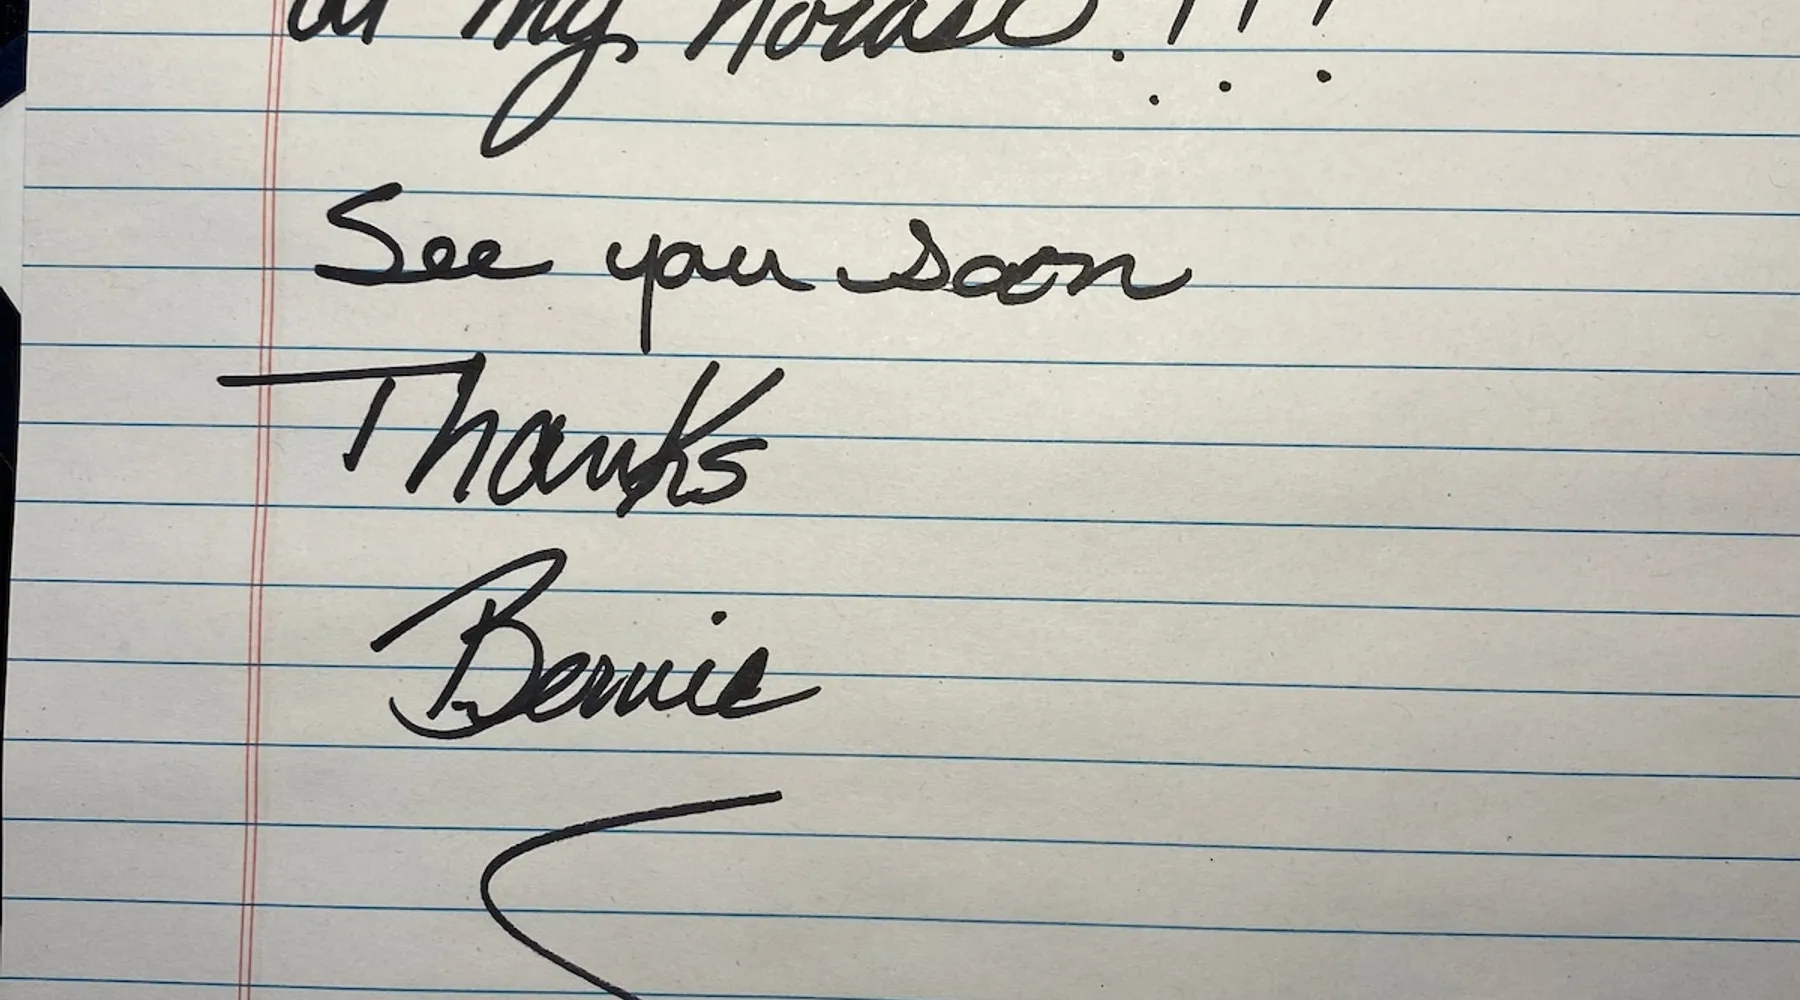 at my house.!!!
See you soon
Thanks
Bernie